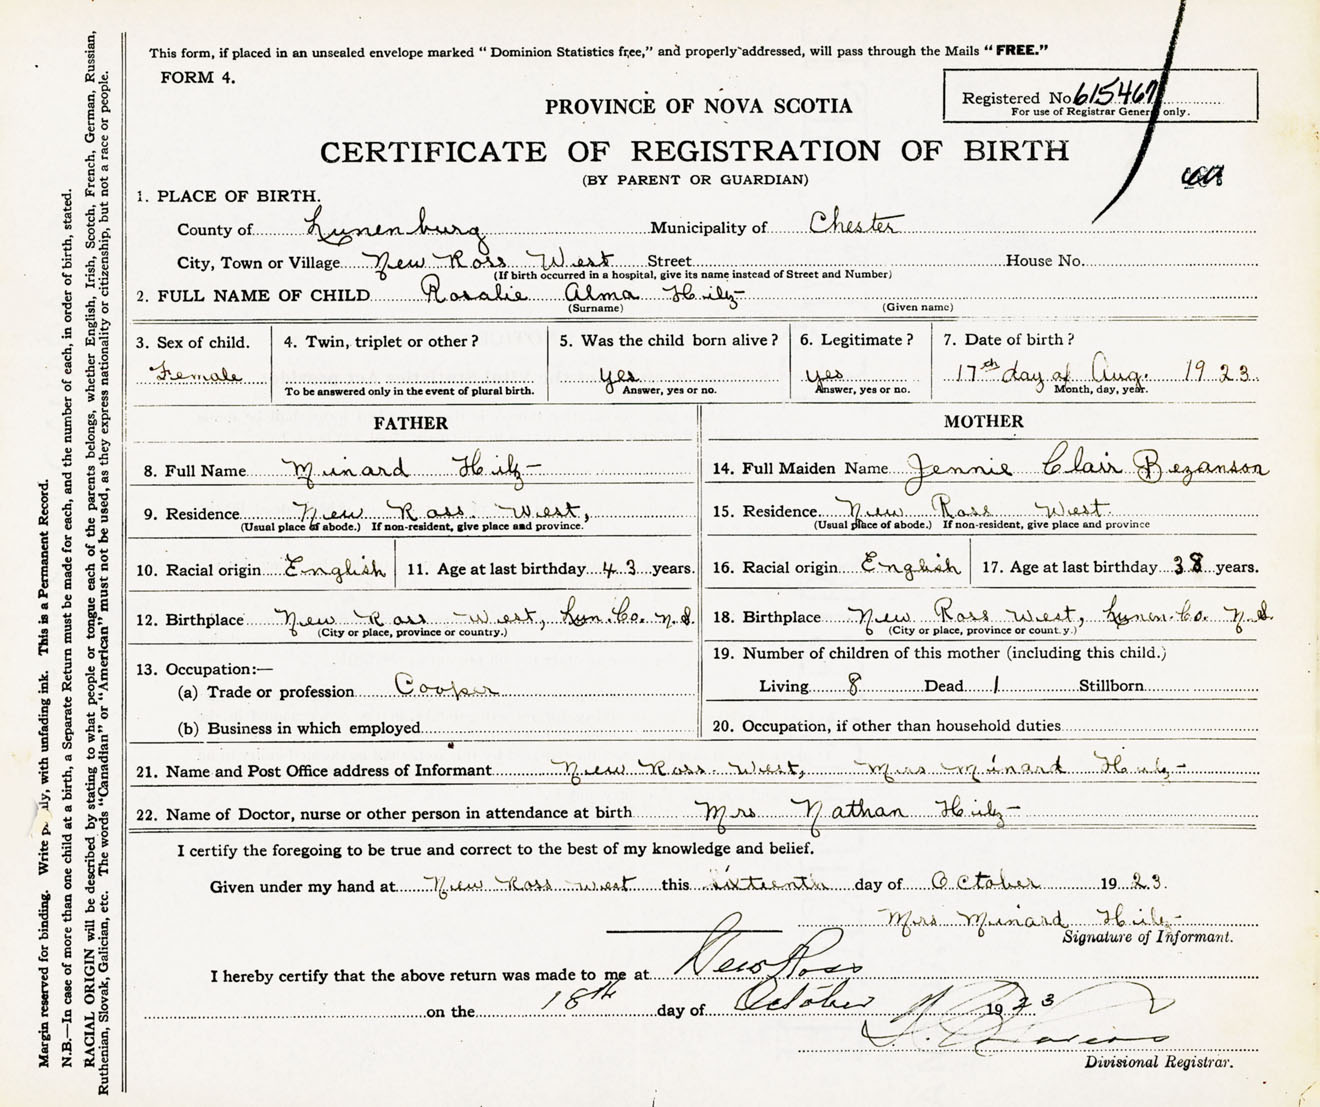 This form, if placed in an unsealed envelope marked " Dominion Statistics free," and properly addressed, will pass through the Mails " FREE."
FORM 4.
Registered No 615467
For use of Registrar General only.
PROVINCE OF NOVA SCOTIA
CERTIFICATE OF REGISTRATION OF BIRTH
(BY PARENT OR GUARDIAN)
1. PLACE OF BIRTH.
County of Lunenburg Municipality of Chester
City, Town or Village New Ross West Street House No.
(If birth occurred in a hospital, give its name instead of Street and Number)
2. FULL NAME OF CHILD Rosalie Alma Hiltz
(Surname) (Given name)
3. Sex of child. 4. Twin, triplet or other ? 5. Was the child born alive ? 6. Legitimate ? 7. Date of birth ?
Female yes yes 17th day of Aug. 1923.
To be answered only in the event of plural birth. Answer, yes or no. Answer, yes or no. Month, day, year.
FATHER MOTHER
8. Full Name Minard Hiltz 14. Full Maiden Name Jennie Clair Bezanson
9. Residence New Ross West, 15. Residence New Ross West.
(Usual place of abode.) If non-resident, give place and province. (Usual place of abode.) If non-resident, give place and province
10. Racial origin English 11. Age at last birthday 43 years. 16. Racial origin English 17. Age at last birthday 38 years.
12. Birthplace New Ross West, Lun. Co. N.S. 18. Birthplace New Ross West, Lunen. Co. N.S.
(City or place, province or country.) (City or place, province or country.)
13. Occupation:— 19. Number of children of this mother (including this child.)
(a) Trade or profession Cooper Living 8 Dead 1 Stillborn
(b) Business in which employed 20. Occupation, if other than household duties
21. Name and Post Office address of Informant New Ross West, Mrs Minard Hiltz
22. Name of Doctor, nurse or other person in attendance at birth Mrs Nathan Hiltz
I certify the foregoing to be true and correct to the best of my knowledge and belief.
Given under my hand at New Ross West this sixteenth day of October 1923.
Mrs Minard Hiltz
Signature of Informant.
I hereby certify that the above return was made to me at New Ross
on the 18th day of October 1923
Divisional Registrar.
Margin reserved for binding. Write plainly, with unfading ink. This is a Permanent Record.
N.B.—In case of more than one child at a birth, a Separate Return must be made for each, and the number of each, in order of birth, stated.
RACIAL ORIGIN will be described by stating to what people or tongue each of the parents belongs, whether English, Irish, Scotch, French, German, Russian,
Ruthenian, Slovak, Galician, etc. The words "Canadian" or "American" must not be used, as they express nationality or citizenship, but not a race or people.